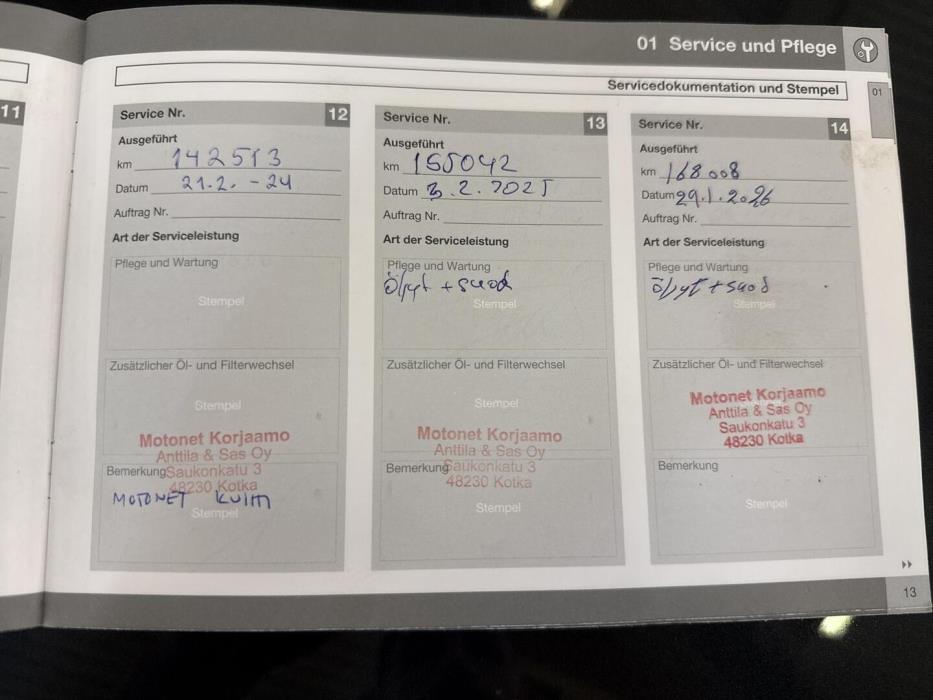 01 Service und Pflege
Servicedokumentation und Stempel
01
11
Service Nr. 12
Ausgeführt
km 142513
Datum 21.2. -24
Auftrag Nr.
Art der Serviceleistung
Pflege und Wartung
Stempel
Zusätzlicher Öl- und Filterwechsel
Stempel
Motonet Korjaamo
Anttila & Sas Oy
Bemerkung Saukonkatu 3
48230 Kotka
MOTONET
Stempel
Service Nr. 13
Ausgeführt
km 155042
Datum 3.2.2025
Auftrag Nr.
Art der Serviceleistung
Pflege und Wartung
Öljyt + suod
Stempel
Zusätzlicher Öl- und Filterwechsel
Stempel
Motonet Korjaamo
Anttila & Sas Oy
Bemerkung Saukonkatu 3
48230 Kotka
Stempel
Service Nr. 14
Ausgeführt
km 168008
Datum 29.1.2026
Auftrag Nr.
Art der Serviceleistung
Pflege und Wartung
öljyt + suod
Stempel
Zusätzlicher Öl- und Filterwechsel
Motonet Korjaamo
Anttila & Sas Oy
Saukonkatu 3
48230 Kotka
Bemerkung
Stempel
13